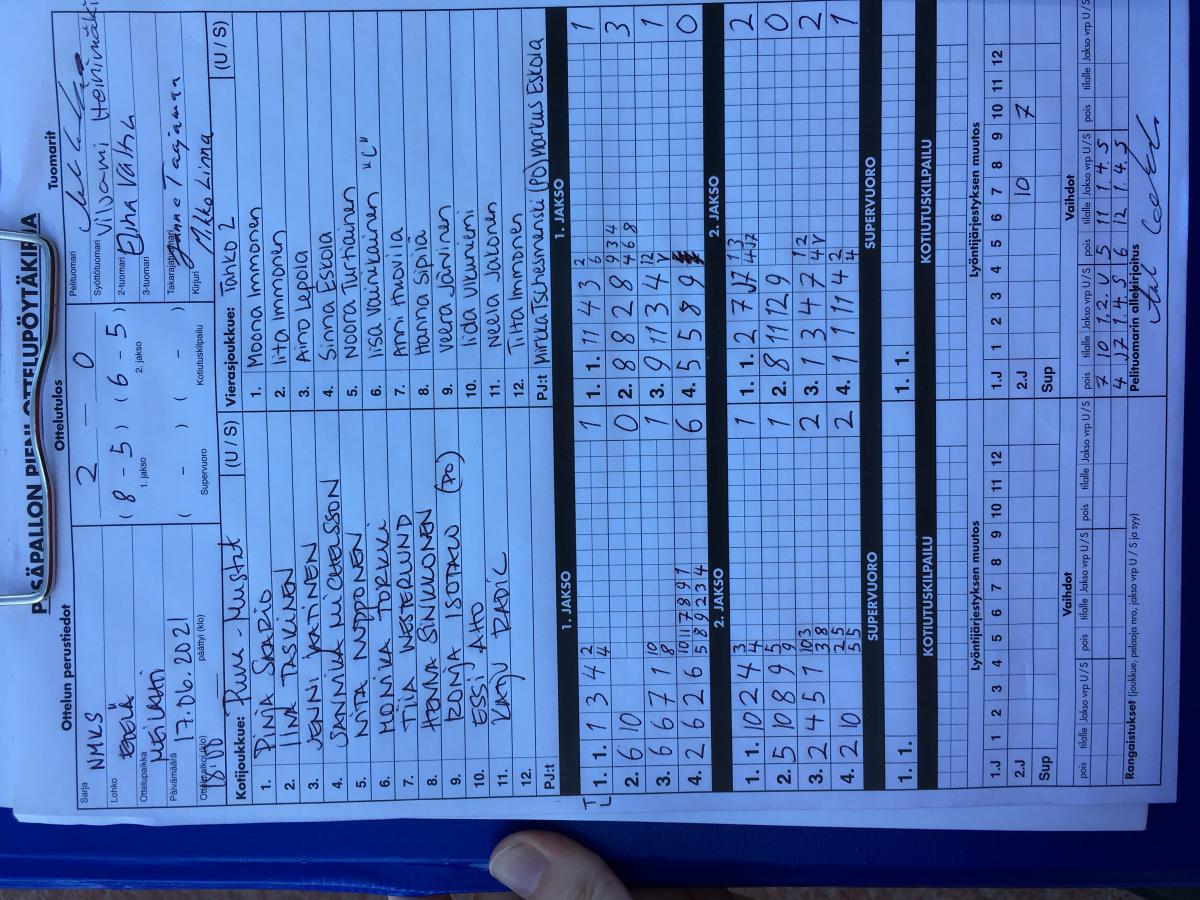 PESÄPALLON PIENI OTTELUPÖYTÄKIRJA
Ottelun perustiedot
Ottelutulos
Tuomarit
Sarja NMKS
Lohko ETELÄ
Ottelupaikka
Päivämäärä 17.06.2021
Ottelu alkoi (klo) 18.00 päättyi (klo)
2 – 0
( 8 – 5 ) ( 6 – 5 )
1. jakso 2. jakso
( – ) ( – )
Supervuoro Kotiutuskilpailu
Pelituomari
Syöttötuomari Viljami Heinimäki
2-tuomari Elina Valta
3-tuomari
Takarajatuomari
Kirjuri Mikko Linna
Kotijoukkue: Puna-Mustat (U / S)
1. PINJA SAARIO
2. IINA TASKINEN
3. JENNI KATINEN
4. JANNIKA MICHELSSON
5. NIITA NUPPONEN
6. MONIKA TORKKI
7. TIIA WESTERLUND
8. HENNA SINKKONEN
9. RONJA ISOTALO (PO)
10. ESSI AHO
11. KAJU RADIC
12.
PJ:t
Vierasjoukkue: Tahko 2 (U / S)
1. Moona Immonen
2. Iita Immonen
3. Aino Lepola
4. Sinna Eskola
5. Noora Turtiainen
6. Iisa Vainikainen "C"
7. Anni Huovila
8. Hanna Sipilä
9. Veera Järvinen
10. Iida Ulkuniemi
11. Neella Jakonen
12. Tiita Immonen
PJ:t Mirkka Tschesmenski (PO) Markus Eskola
1. JAKSO
1. 1. 1 3 4 2 4 1
2. 6 10 0
3. 6 6 7 1 10 8 1
4. 2 6 2 6 10 11 7 8 9 1 5 8 9 2 3 4 6
1. JAKSO
1. 1. 11 4 3 2 6 1
2. 8 8 2 8 9 3 4 4 6 8 3
3. 9 11 3 4 12 V 1
4. 5 5 8 9 0
2. JAKSO
1. 1. 10 2 4 3 4 1
2. 5 10 8 9 5 9 1
3. 2 4 5 1 10 3 3 8 2
4. 2 10 2 5 5 5 2
2. JAKSO
1. 1. 2 7 J7 1 3 4 J7 2
2. 8 11 12 9 0
3. 1 3 4 7 1 2 4 V 2
4. 1 11 4 2 4 1
SUPERVUORO
1. 1.
SUPERVUORO
1. 1.
KOTIUTUSKILPAILU
KOTIUTUSKILPAILU
Lyöntijärjestyksen muutos
1.J 1 2 3 4 5 6 7 8 9 10 11 12
2.J
Sup
Lyöntijärjestyksen muutos
1.J 1 2 3 4 5 6 7 8 9 10 11 12
2.J 10 7
Sup
Vaihdot
pois tilalle Jakso vrp U / S pois tilalle Jakso vrp U / S pois tilalle Jakso vrp U / S
Vaihdot
pois tilalle Jakso vrp U / S pois tilalle Jakso vrp U / S pois tilalle Jakso vrp U / S
7 10 1. 2. U 5 11 1. 4. S
4 J7 1. 4. S 6 12 1. 4. S
Rangaistukset (joukkue, pelaaja nro, jakso vrp U / S ja syy)
Pelituomarin allekirjoitus